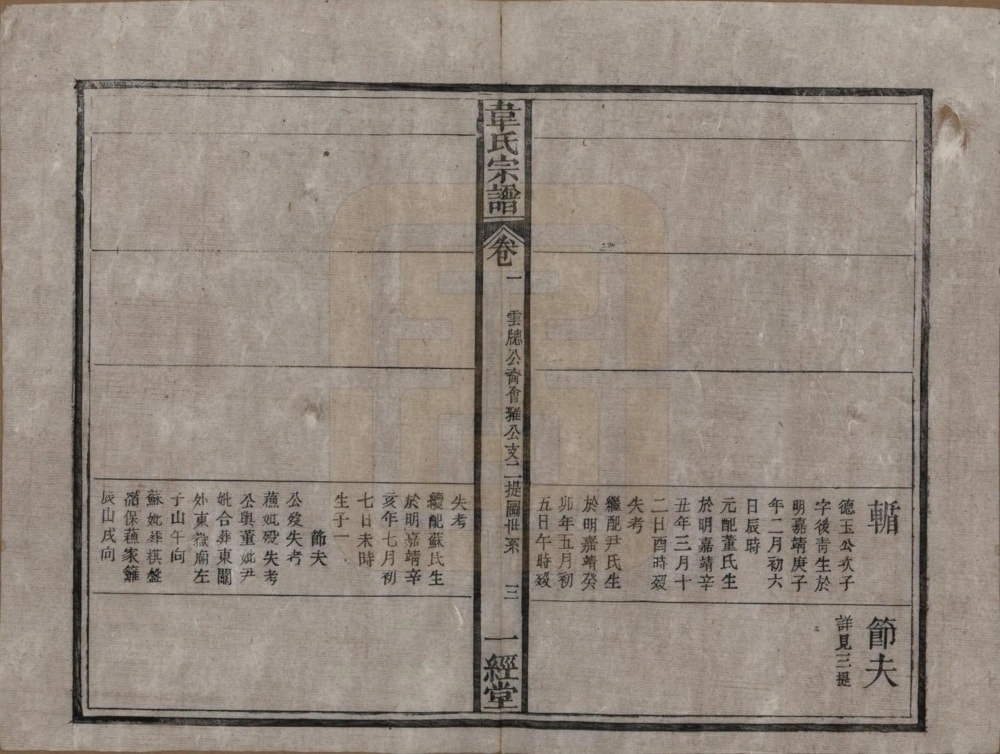 暂
德玉公次子
字後青生於
明嘉靖庚子
年二月初六
日辰時
元配董氏生
於明嘉靖辛
丑年三月十
二日酉時歿
失考
繼配尹氏生
於明嘉靖癸
卯年五月初
五日午時歿
節夫
詳見三提
韋氏宗譜
卷一
雲牕公裔會雅公支二提圖世系
三
一經堂
失考
續配蘇氏生
於明嘉靖辛
亥年七月初
七日未時
生子一
節夫
公歿失考
蘓妣歿失考
公與董妣尹
妣合葬東關
外東嶽廟左
子山午向
蘇妣葬棋盤
保蘓家
辰山戌向